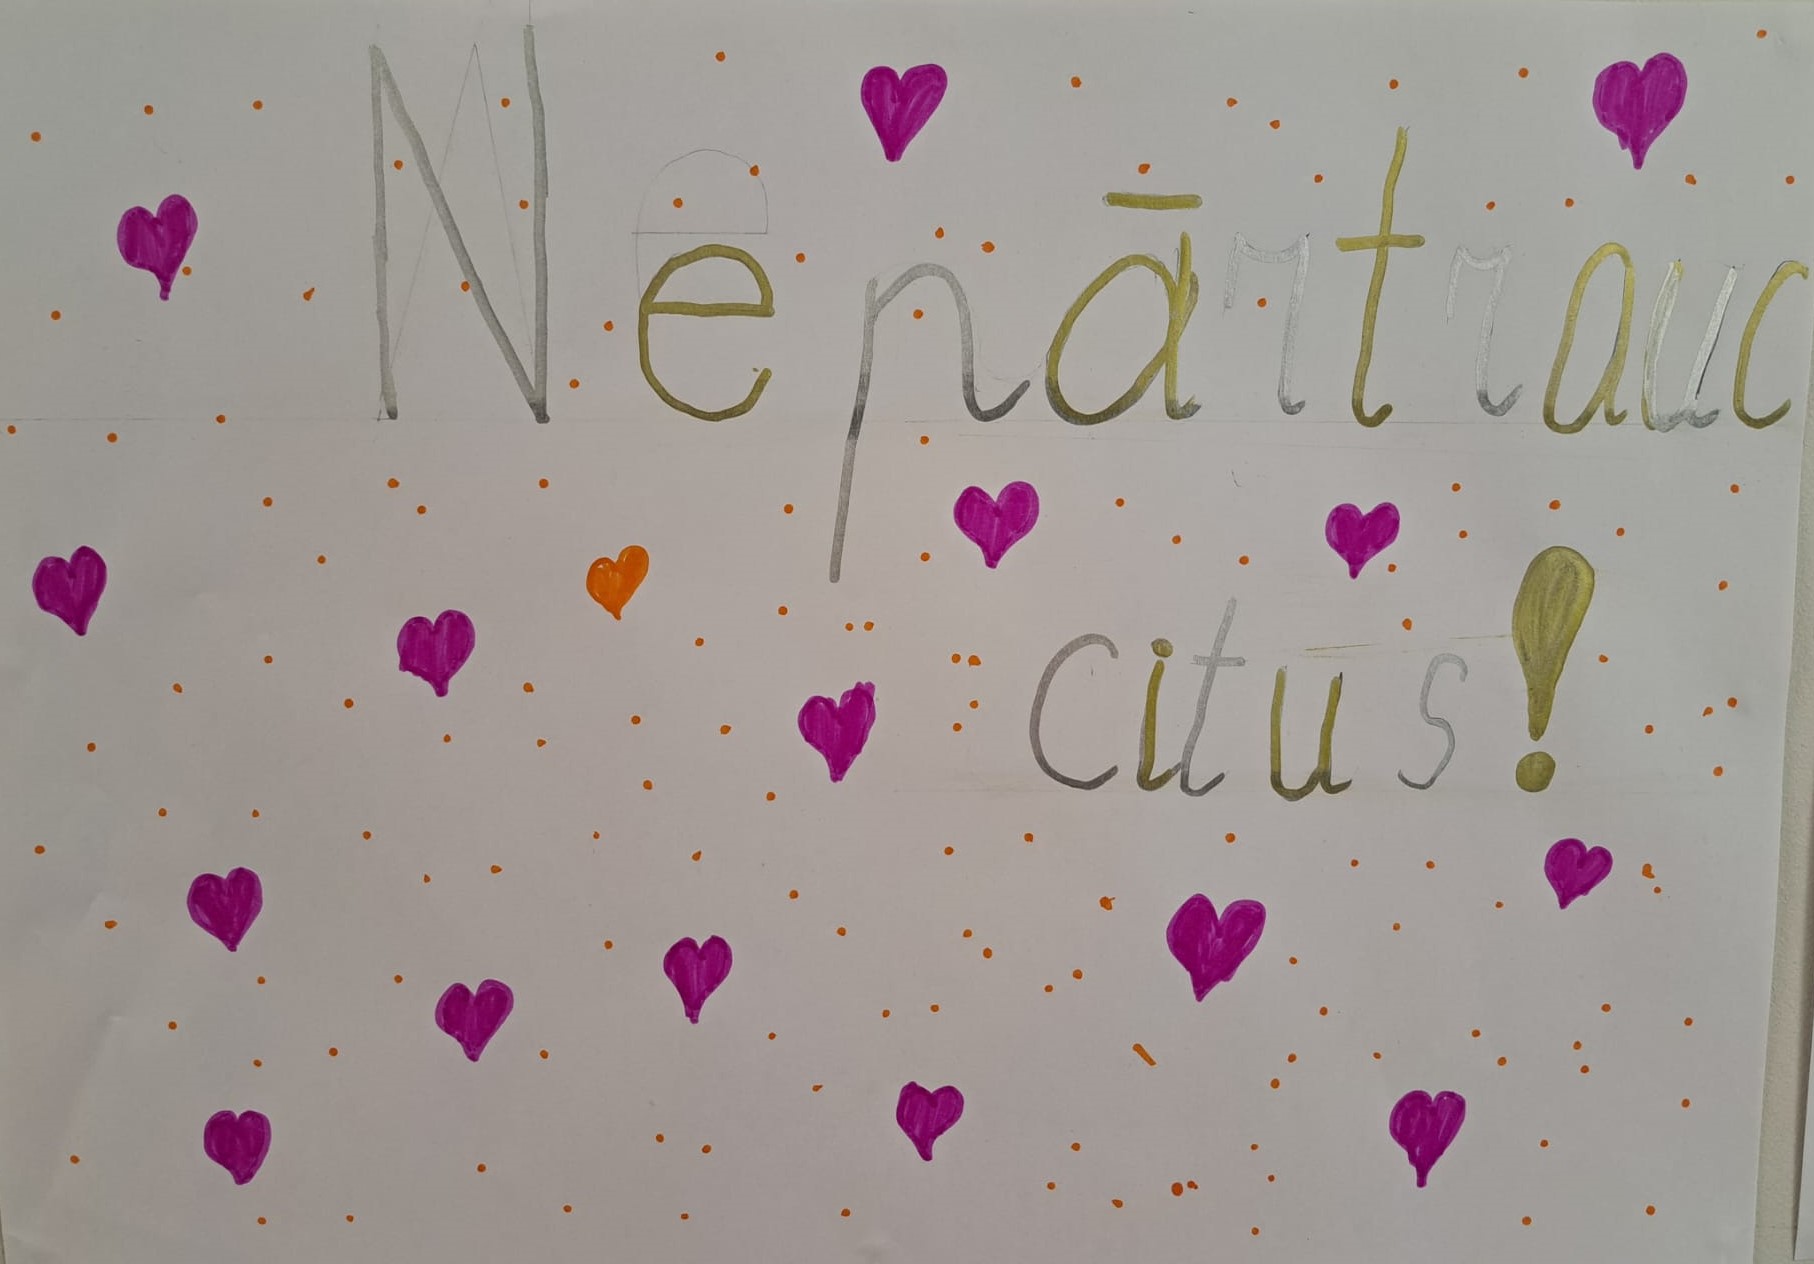 Nepārtrauc
citus!